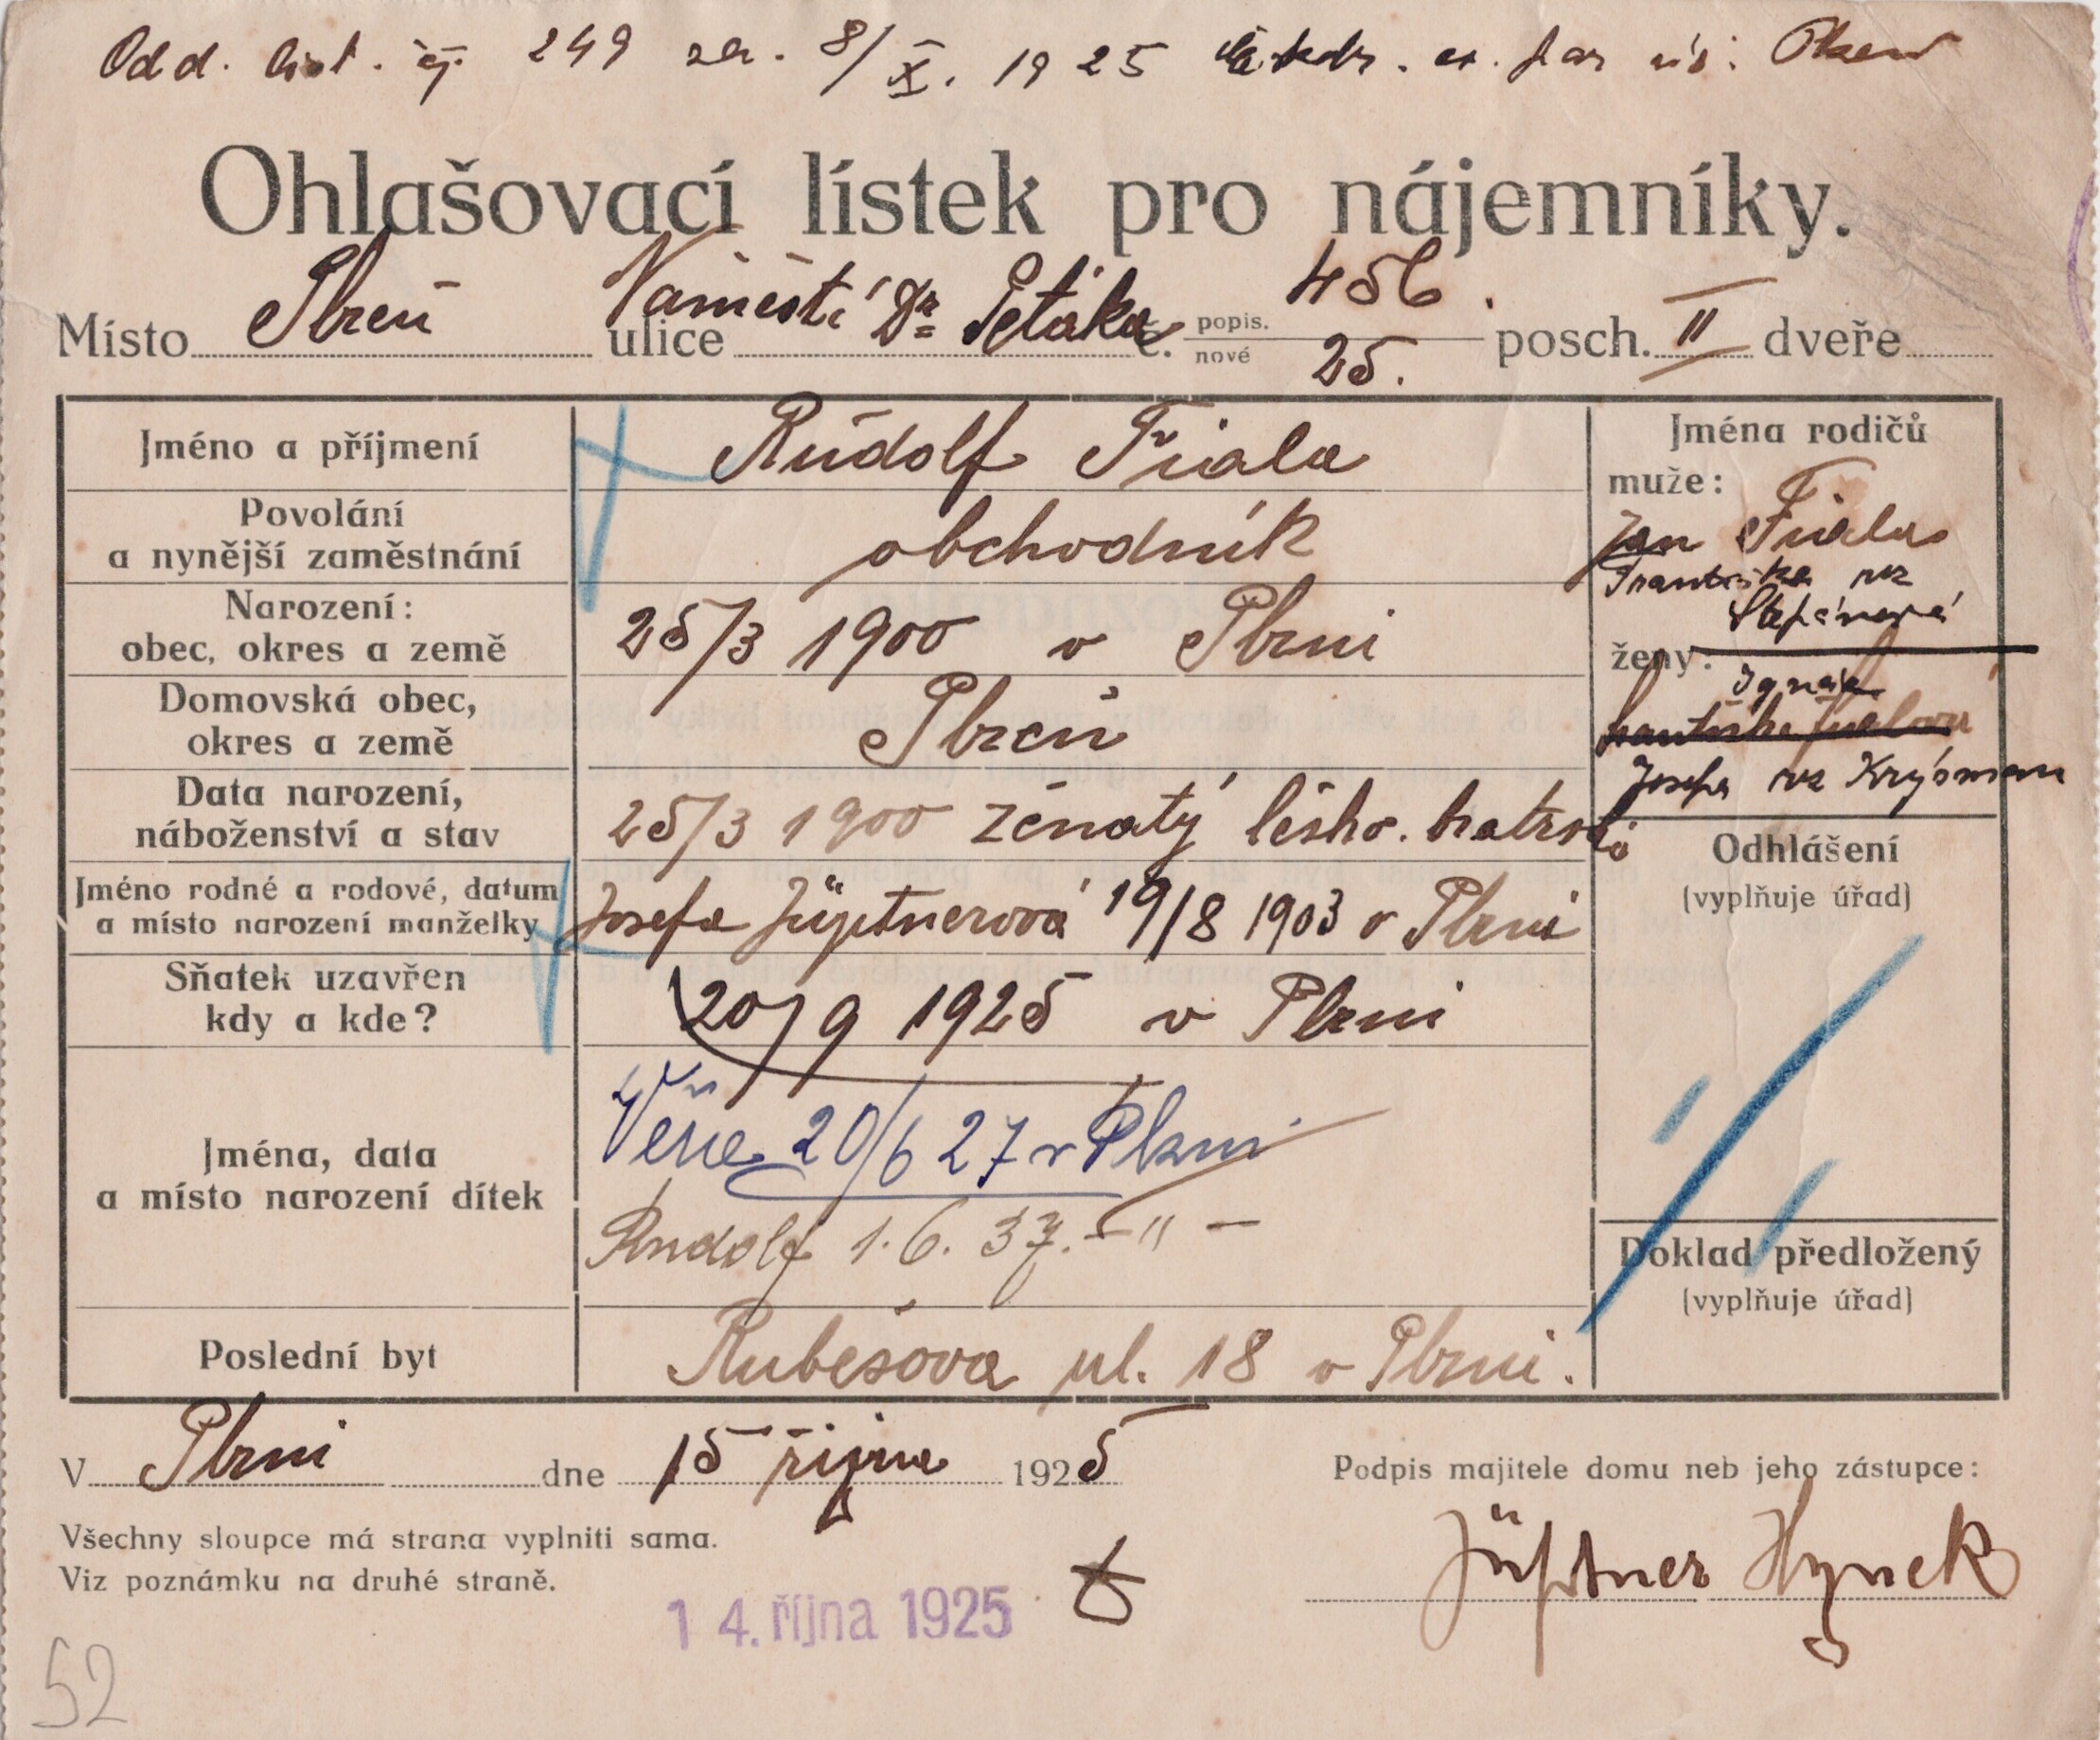 Odd. list. čj. 249 ze. 8/X. 1925 far. úř. Plzeň
Ohlašovací lístek pro nájemníky.
Místo Plzeň ulice Naměstí Dr Petáka č. popis. 456. nové 25. posch. II dveře
Jméno a příjmení Rudolf Fiala
Povolání
a nynější zaměstnání obchodník
Narození:
obec, okres a země 25/3 1900 v Plzni
Domovská obec,
okres a země Plzeň
Data narození,
náboženství a stav 25/3 1900 ženatý česko. bratrské
Jméno rodné a rodové, datum
a místo narození manželky Josefa Jüptnerová 19/8 1903 v Plzni
Sňatek uzavřen
kdy a kde? 20/9 1925 v Plzni
Jména, data
a místo narození dítek
Věra 20/6 27 v Plzni
Rudolf 1.6.37. – " –
Poslední byt Rubešova ul. 18 v Plzni.
Jména rodičů
muže:
Jan Fiala
Františka roz
Štěpánová
ženy:
Ignác
Františka Fialova
Josefa roz Krýsman
Odhlášení
(vyplňuje úřad)
Doklad předložený
(vyplňuje úřad)
V Plzni dne 15 října 1925
Podpis majitele domu neb jeho zástupce:
Všechny sloupce má strana vyplniti sama.
Viz poznámku na druhé straně.
Jüptner Hynek
14. října 1925
52